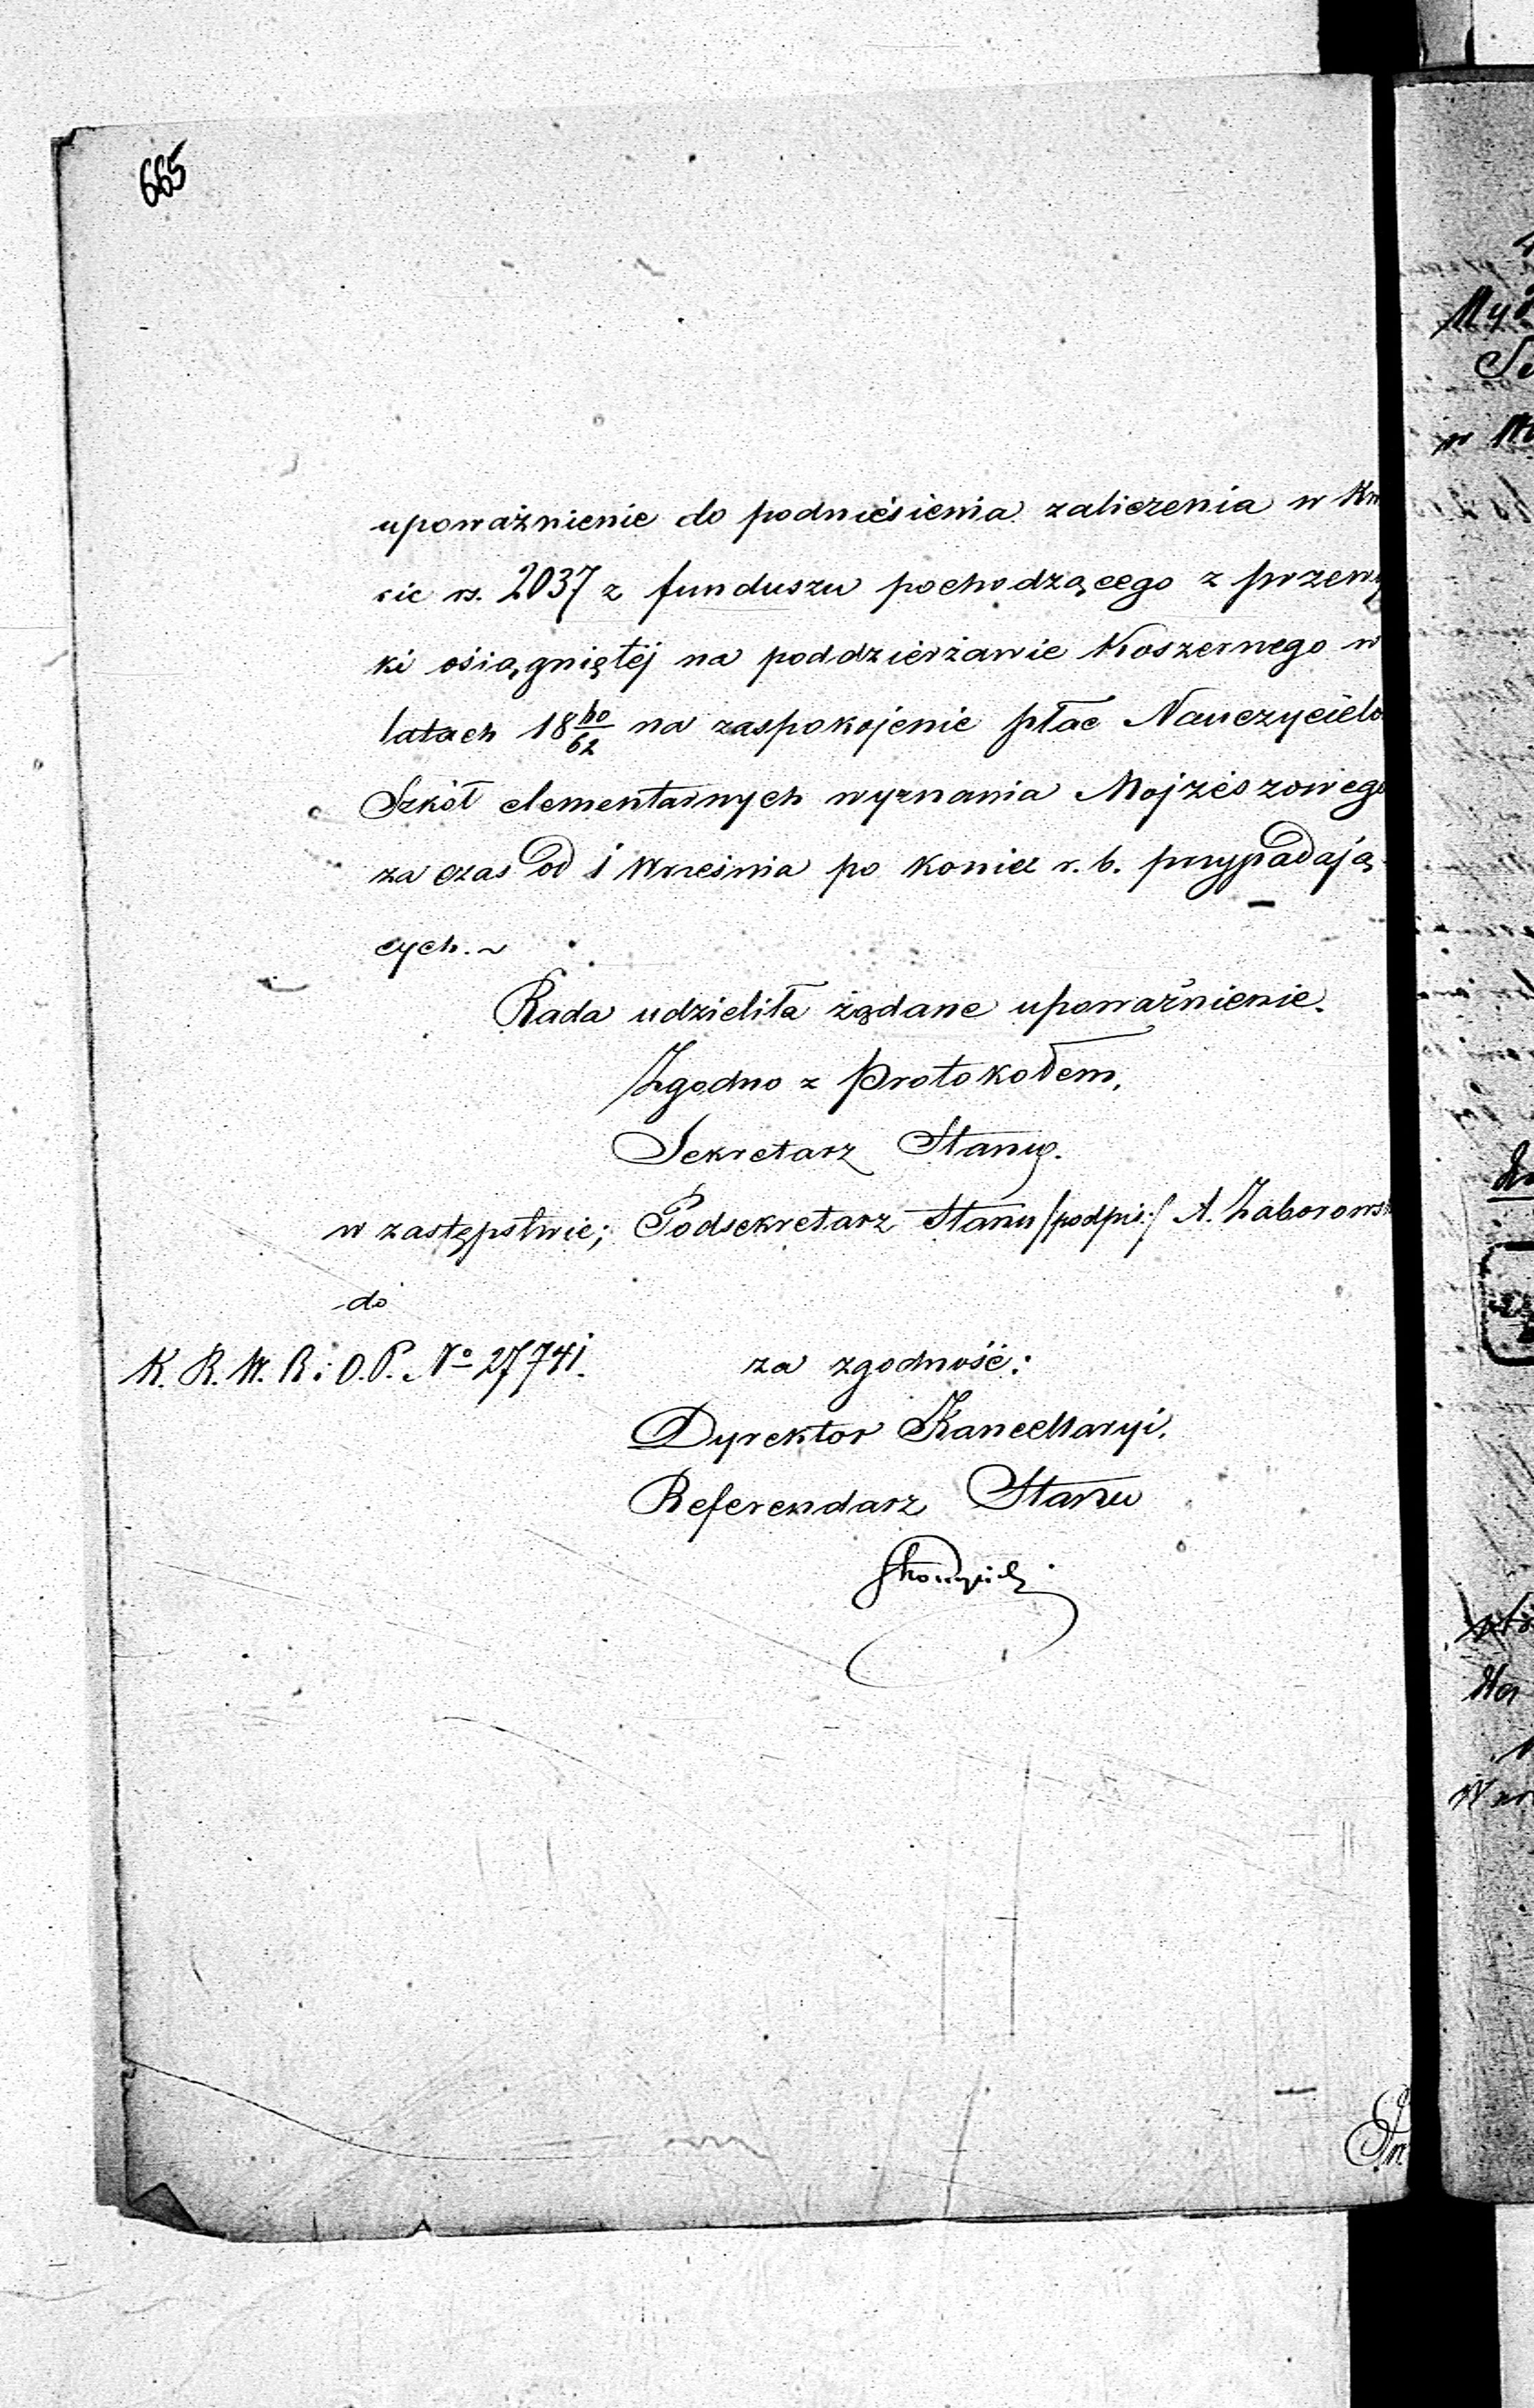 665
upoważnienie do podniesienia zaliczenia w Kw
cie rs. 2037 z funduszu pochodzącego z przewy
ki osiągniętéj na poddzierżawie Koszernego w
latach 18 60/62 na zaspokojenie płac Nauczycielo
Szkół elementarnych wyznania Mojżeszowego
za czas od 1 Września po koniec r. b. przypadają
cych.
Rada udzieliła żądane upoważnienie.
Zgodno z Protokołem,
Sekretarz Stanu.
w zastępstwie; Podsekretarz Stanu /podpis:/ A. Zaborowsk
do
K. R. W. R. i O. P. No 27741.
za zgodność:
Dyrektor Kancellaryi.
Referendarz Stanu